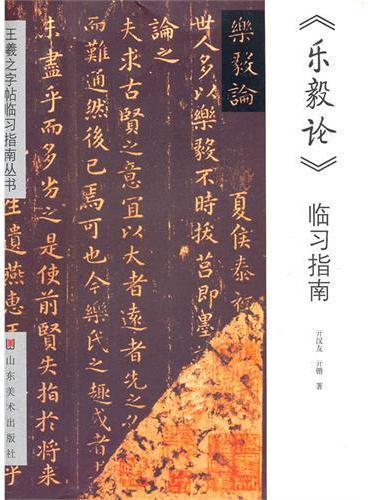 《乐毅论》
临习指南
亓汉友 亓 著
樂毅論
夏侯泰
世人多以樂毅不時拔莒即墨
論之
夫求古賢之意宜以大者遠者先之
而難通然後已焉可也今樂氏之趣或者
未盡乎而多劣之是使前賢失指於將
生遺燕惠王
王羲之字帖临习指南丛书
山东美术出版社